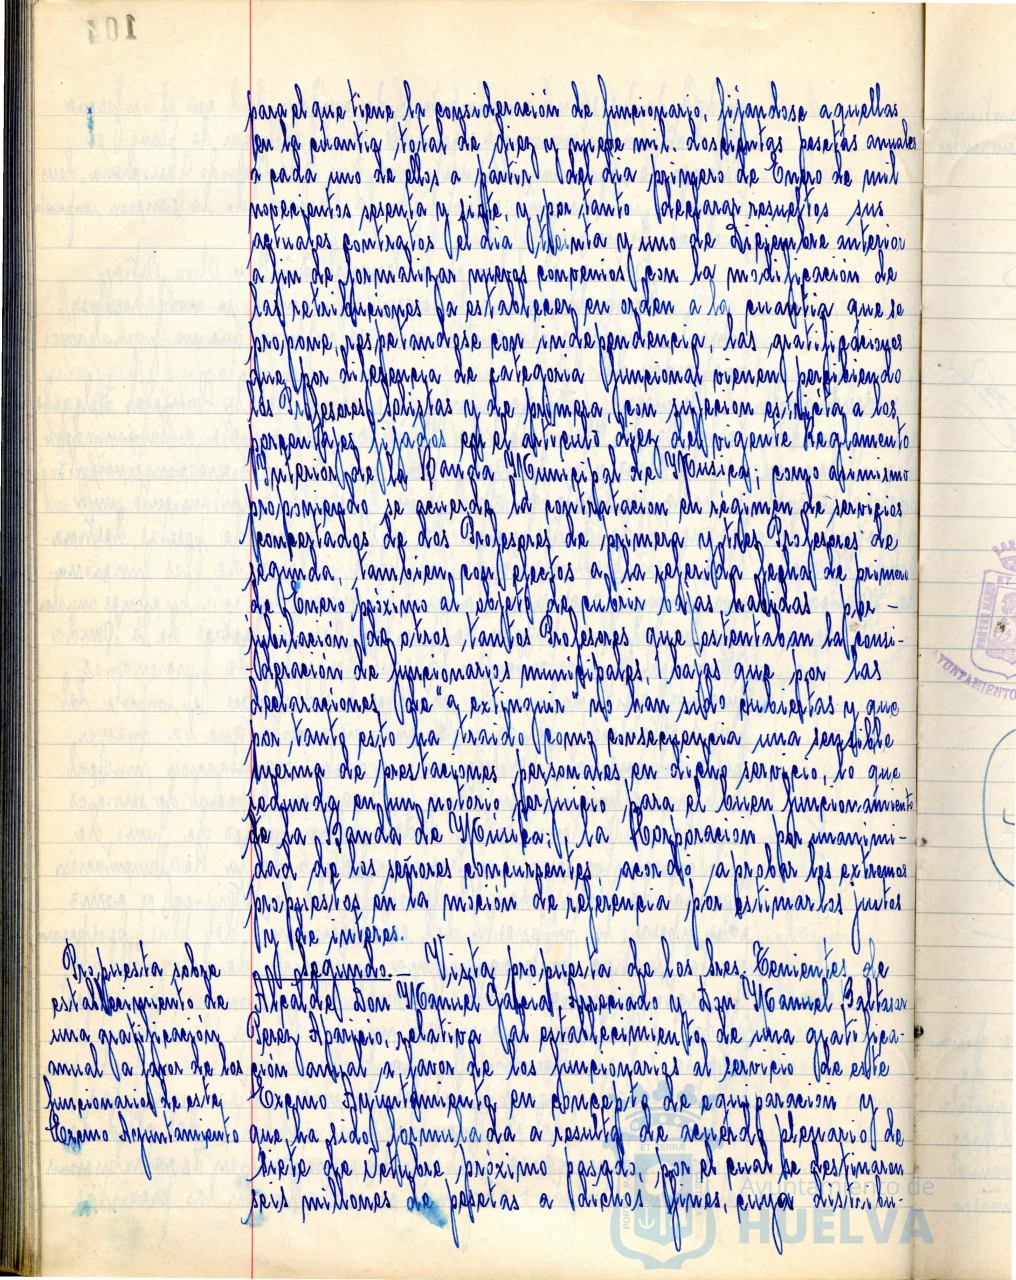 para el que tiene la consideración de funcionario, fijandose aquellas
en la cuantia total de diez y nueve mil doscientas pesetas anuales
a cada uno de ellos a partir del dia primero de Enero de mil
novecientos sesenta y siete, y por tanto declarar resueltos sus
actuales contratos el dia treinta y uno de Diciembre anterior
a fin de formalizar nuevos convenios con la modificación de
las retribuciones a establecer en orden a la cuantia que se
propone, respetandose con independencia, las gratificaciones
que por diferencia de categoria funcional vienen percibiendo
los Profesores solistas y de primera con sujecion estricta a los
porcentajes fijados en el articulo diez del vigente Reglamento
Interior de la Banda Municipal de Musica, como asimismo
proponiendo se acuerde la contratacion en régimen de servicios
concertados de dos Profesores de primera y tres Profesores de
segunda, tambien con efectos a la referida fecha de primero
de Enero próximo al objeto de cubrir bajas habidas por
jubilación de otros tantos Profesores que ostentaban la consi-
deración de funcionarios municipales, bajas que por las
declaraciones de "a extinguir" no han sido cubiertas y que
por tanto esto ha traido como consecuencia una sensible
merma de prestaciones personales en dicho servicio, lo que
redunda en un notorio perjuicio para el buen funcionamiento
de la Banda de Música; la Corporacion por unanimi-
dad de los señores concurrentes acordó aprobar los extremos
propuestos en la moción de referencia por estimarlos justos
y de interes.
Propuesta sobre
establecimiento de
una gratificación
anual a favor de los
funcionarios de este
Excmo Ayuntamiento
Segundo.- Vista propuesta de los Sres. Tenientes de
Alcalde Don Manuel Apreciado y Don Manuel Baltasar
Perez Aparicio, relativa al establecimiento de una gratifica-
ción anual a favor de los funcionarios al servicio de este
Excmo Ayuntamiento, en concepto de equiparacion y
que ha sido formulada a resulta de acuerdo plenario de
siete de Octubre próximo pasado, por el cual se destinaron
seis millones de pesetas a dichos fines, cuya distribu-
104
AYUNTAMIENTO
Ayuntamiento de
HUELVA